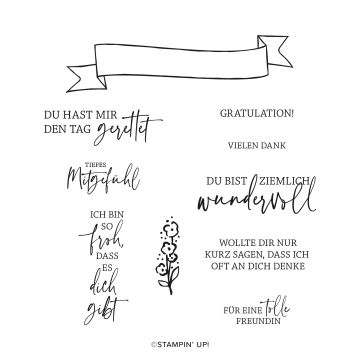 DU HAST MIR
DEN TAG gerettet
GRATULATION!
VIELEN DANK
TIEFES
Mitgefühl
DU BIST ZIEMLICH
wundervoll
ICH BIN
SO
froh,
DASS
ES
dich
gibt
WOLLTE DIR NUR
KURZ SAGEN, DASS ICH
OFT AN DICH DENKE
FÜR EINE tolle
FREUNDIN
©STAMPIN' UP!